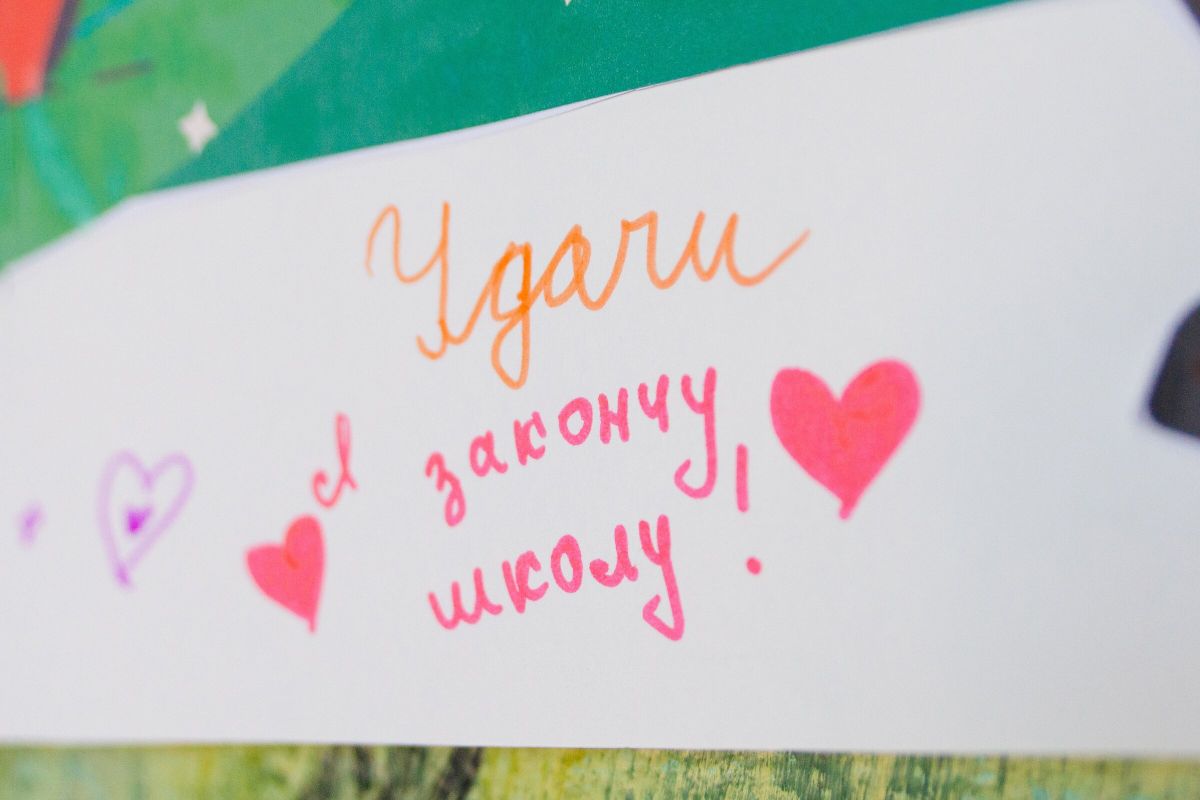 Удачи
Я закончу
школу!